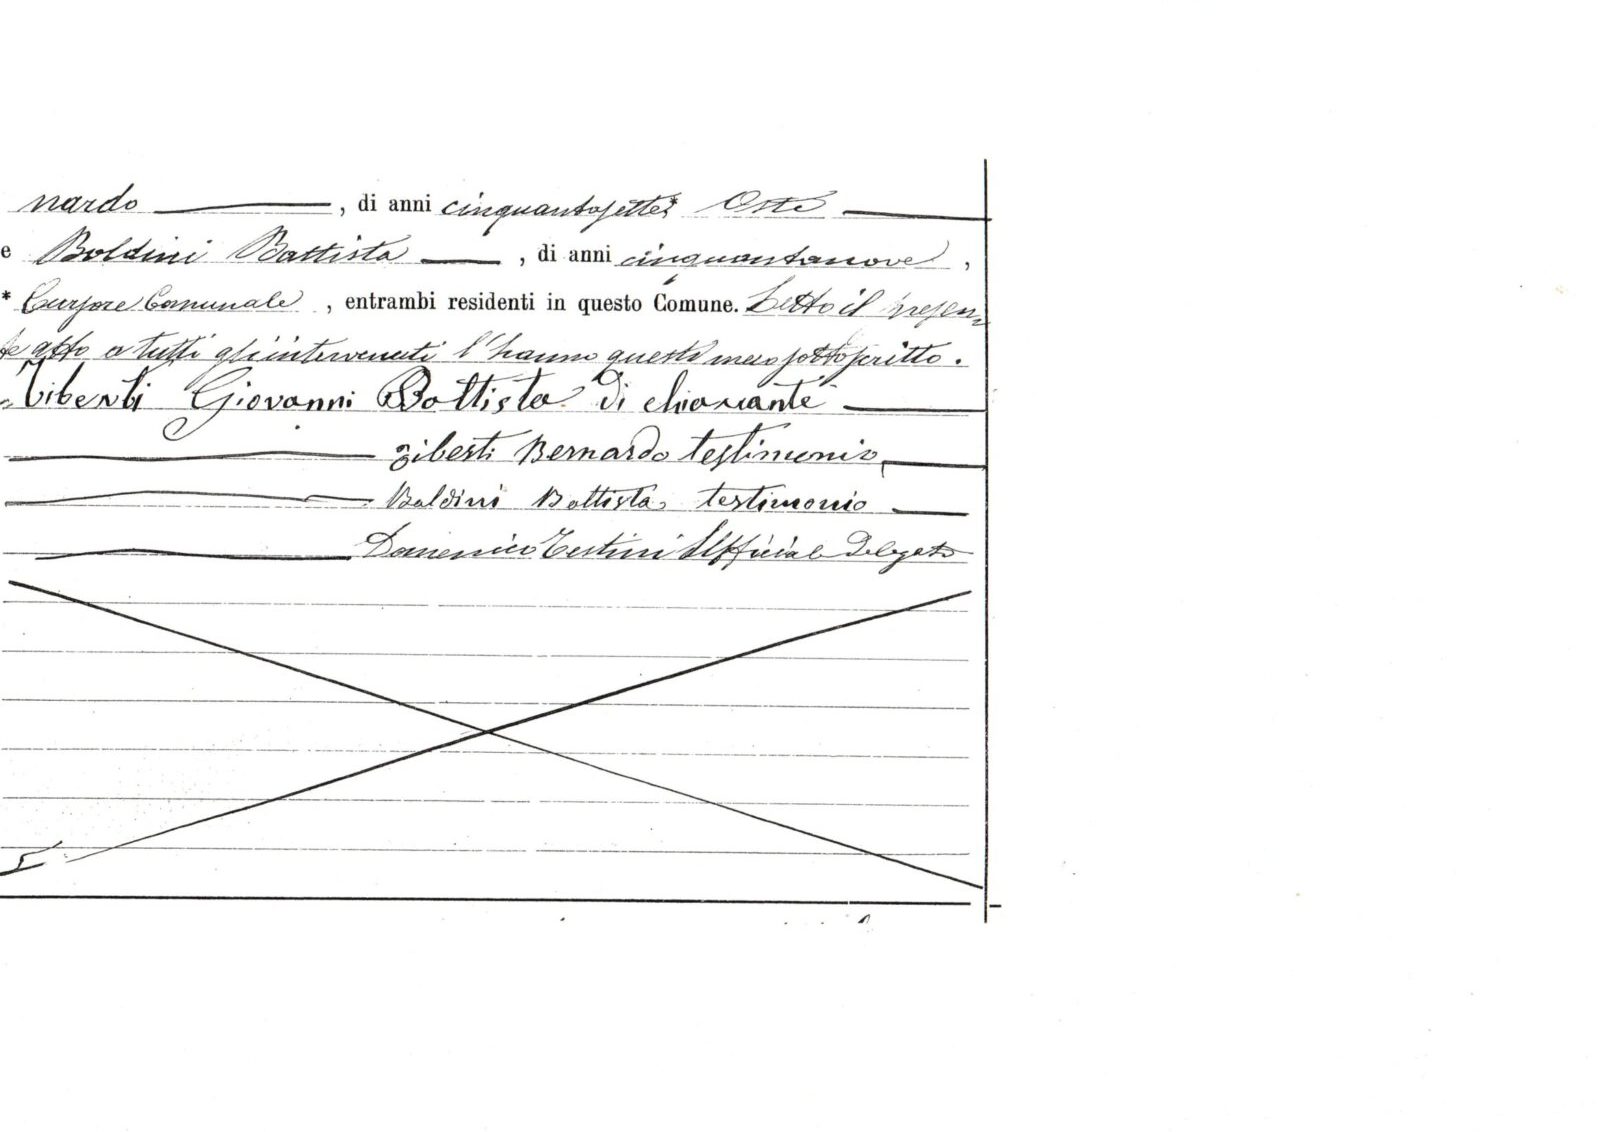 nardo , di anni cinquantasette, Oste
e Boldini Battista , di anni cinquantanove ,
* Cursore Comunale , entrambi residenti in questo Comune. Letto il presen
te atto a tutti gli intervenuti l'hanno questi meco sottoscritto.
Giovanni Battista di
Bernardo testimonio
Boldini Battista testimonio
Domenico Testini Ufficiale Delegato